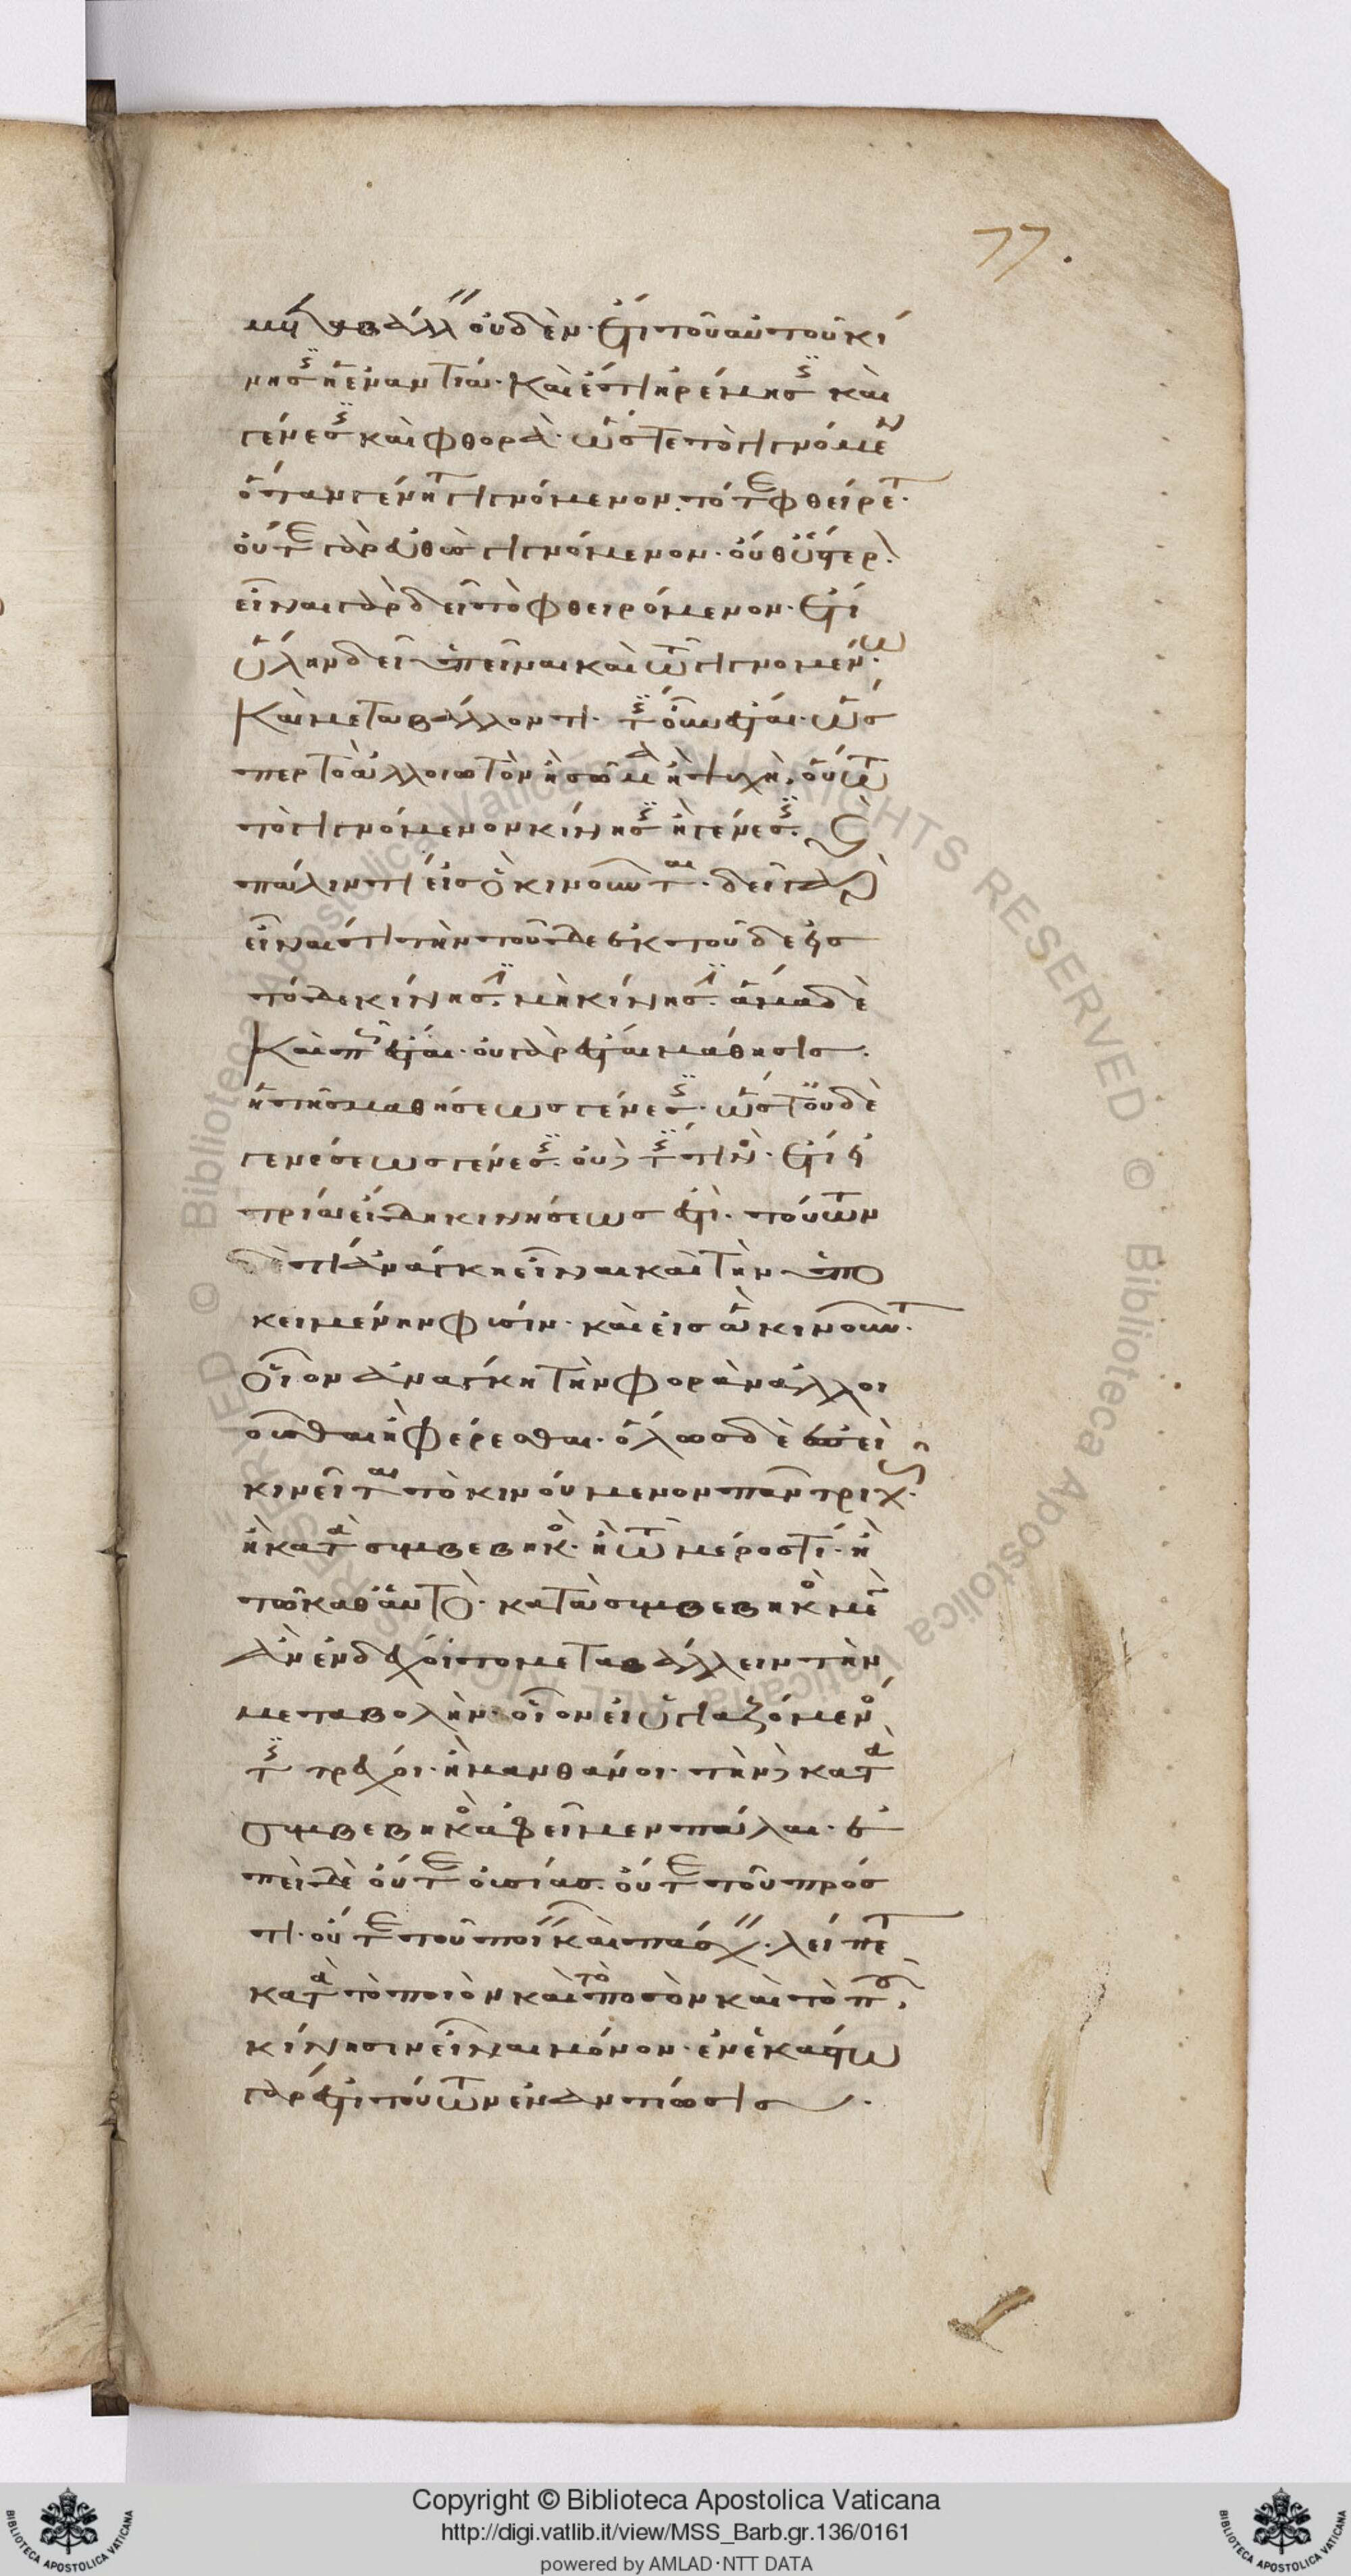 μὴ μεταβάλλειν οὐδὲν· ἔτι τοῦ αὐτοῦ κί
νησις ἡ ἐναντία· καὶ ἔτι ἠρέμησις καὶ
γένεσις καὶ φθορά· ὥστε τὸ γιγνόμενον
ὅταν γένηται γιγνόμενον, τότε φθείρεται·
οὔτε γὰρ εὐθὺς γιγνόμενον· οὔθ' ὕστερον
εἶναι γὰρ δεῖ τὸ φθειρόμενον· ἔτι
ὕλην δεῖ ὑπεῖναι καὶ τῶ γιγνομένω
καὶ μεταβάλλοντι· τίς οὖν ἔσται· ὥς
περ τὸ ἀλλοιωτὸν ἢ σῶμα ἢ ψυχὴ, οὕτω
τὸ γιγνόμενον κίνησις ἢ γένεσις· καὶ
πάλιν τί εἰς ὃ κινοῦνται· δεῖ γὰρ
εἶναί τι τὴν τοῦδε ἐκ τοῦδε εἰς
τόδε κίνησιν· μὴ κίνησιν· ἅμα δὲ
καὶ πῶς ἔσται· οὐ γὰρ ἔσται μάθησις
ἡ τῆς μαθήσεως γένεσις· ὥστ' οὐδὲ
γενέσεως γένεσις· οὐδέ τις τινός· ἔτι εἰ
τρία εἴδη κινήσεως ἐστὶ· τούτων
τι ἀνάγκη εἶναι καὶ τὴν ὑπο
κειμένην φύσιν· καὶ εἰς ἃ κινοῦνται·
οἷον ἀνάγκη τὴν φορὰν ἀλλοι
οῦσθαι ἢ φέρεσθαι· ὅλως δὲ ἐπεὶ
κινεῖται τὸ κινούμενον πᾶν τριχῶς·
ἢ κατὰ συμβεβηκὸς· ἢ τῶ μέρος τι· ἢ
τῶ καθ' αὑτὸ· κατὰ συμβεβηκὸς μόνον
ἂν ἐνδέχοιτο μεταβάλλειν τὴν
μεταβολὴν· οἷον εἰ ὑγιαζόμενός
τις τρέχοι· ἢ μανθάνοι· τὴν δὲ κατὰ
συμβεβηκὸς ἀφεῖμεν πάλαι· ἐ
πεὶ δὲ οὔτε οὐσίας· οὔτε τοῦ πρός
τι· οὔτε τοῦ ποιεῖν καὶ πάσχειν· λείπεται
κατὰ τὸ ποιὸν καὶ τὸ ποσὸν καὶ τὸ ποῦ,
κίνησιν εἶναι μόνον· ἐν ἑκάστω
γάρ ἐστι τούτων ἐναντίωσις